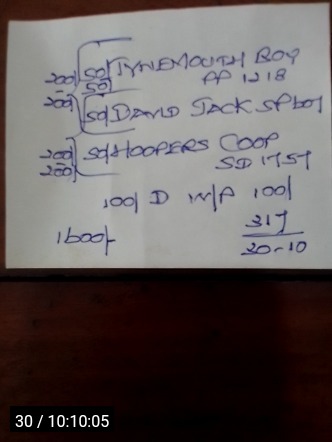 200/ 50/ TYNEMOUTH BOY
50/ PP 1218
200/ 50/ DAVID JACK SP 60/
200/ 50/ HOOPERS COOP
200/ SD 1757
100/ D M/P 100/
317
1600/- 20-10
30 / 10:10:05